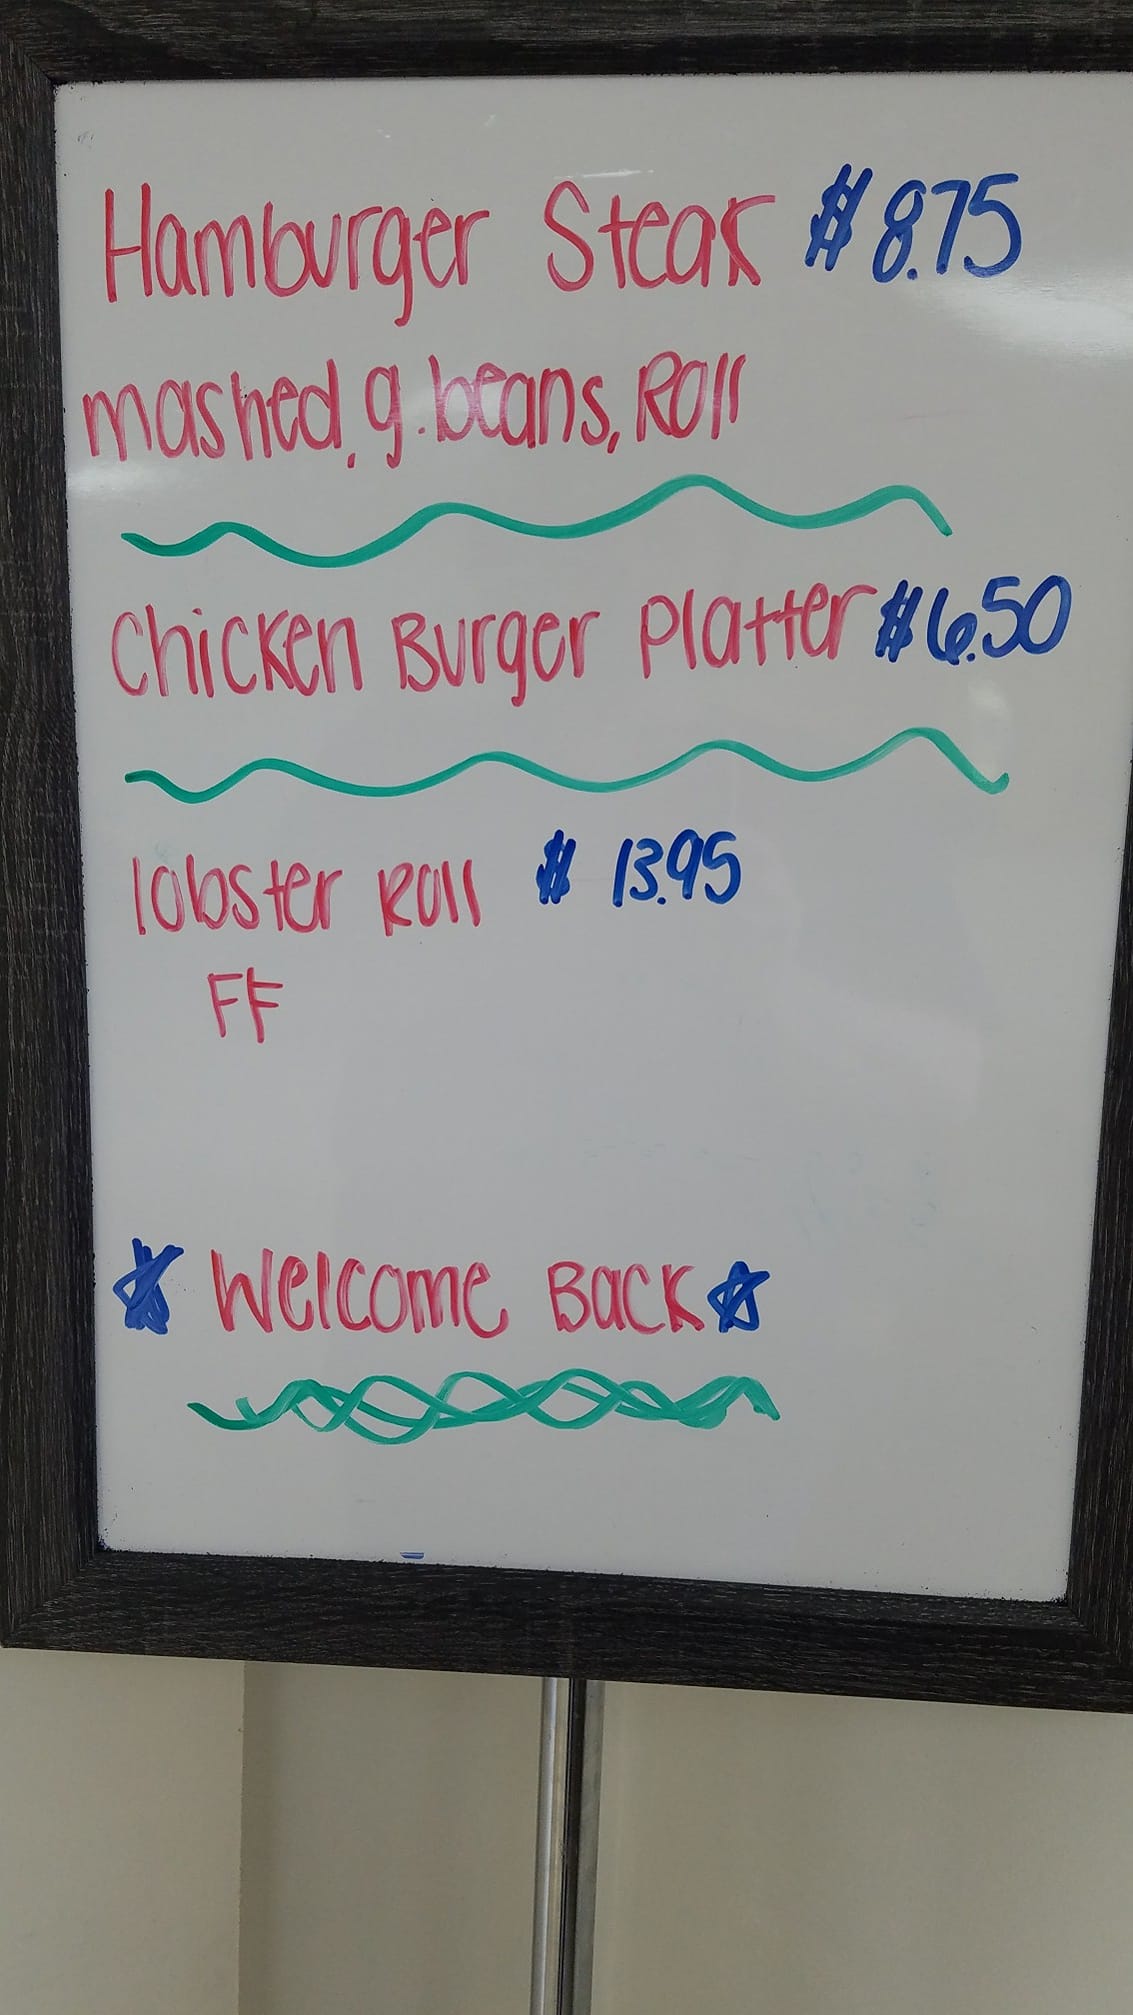 Hamburger Steak $8.75
mashed, g. beans, Roll
Chicken Burger Platter $6.50
lobster Roll $13.95
FF
Welcome Back